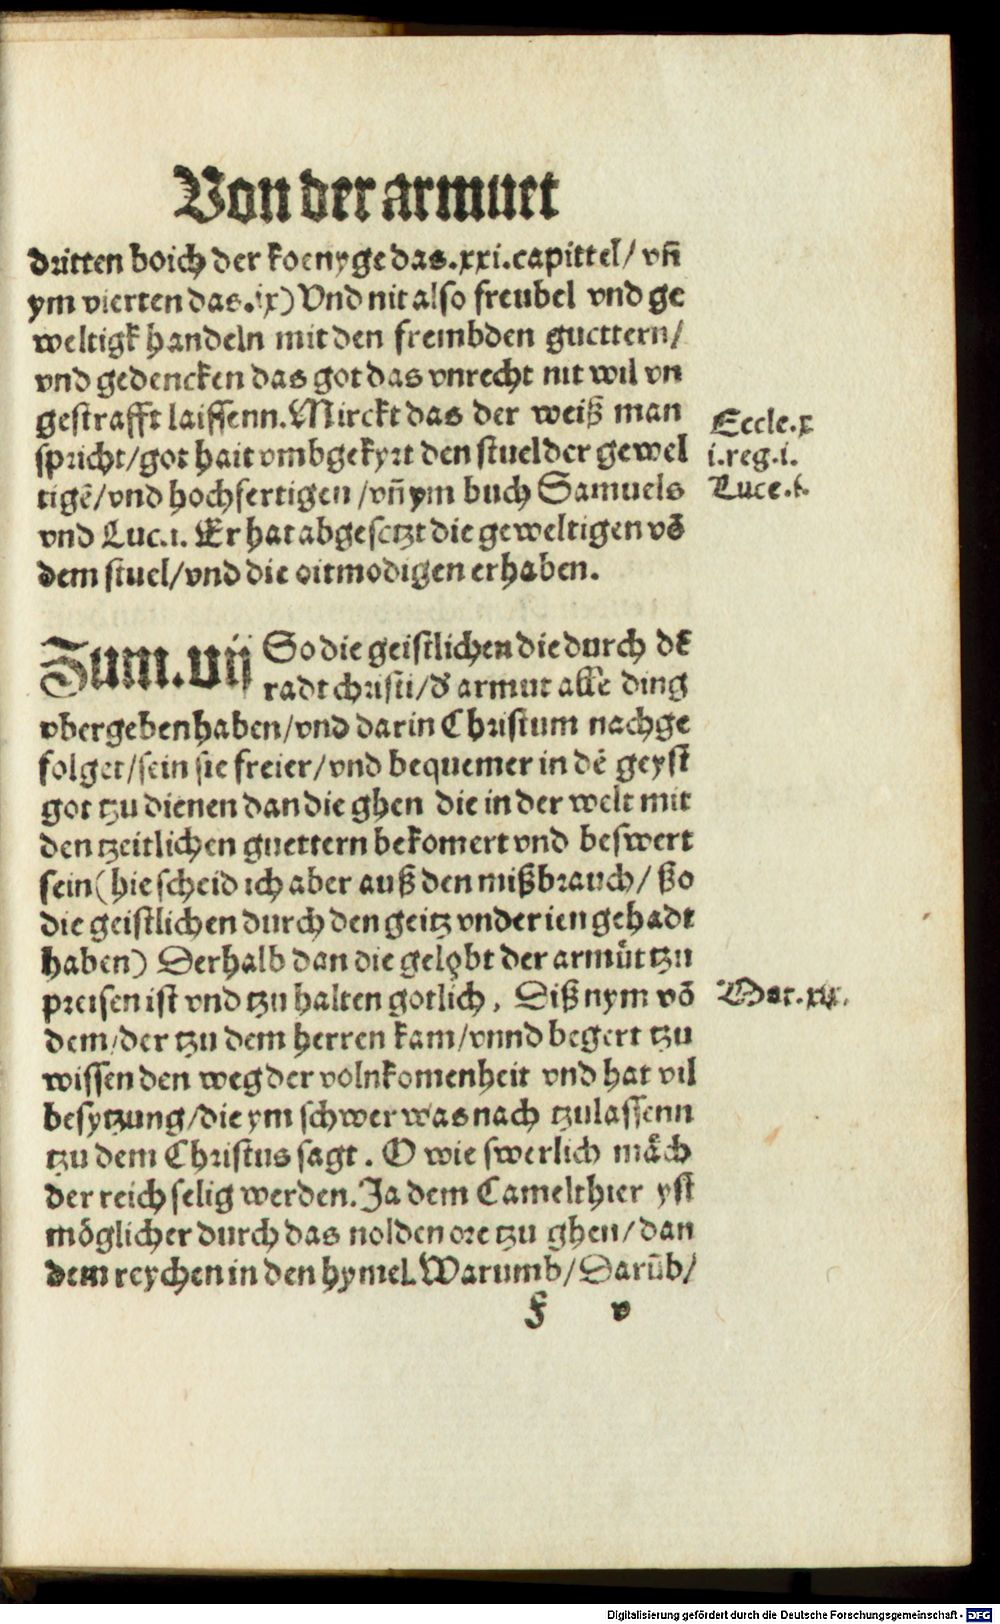 Von der armuet
dritten boich der koenyge das.xxi.capittel/ vñ
ym vierten das.ix) Vnd nit also freubel vnd ge
weltigk handeln mit den frembden guettern/
vnd gedencken das got das vnrecht nit wil vn
gestrafft laissenn. Mirckt das der weiß man
spricht/got hait vmbgekyrt den stuel der gewel
tigē/vnd hochfertigen /vñ ym buch Samuels
vnd Luc.i. Er hat abgesetzt die geweltigen vō
dem stuel/vnd die oitmodigen erhaben.
Eccle.x
i.reg.i.
Luce.i.
Zum.vij So die geistlichen die durch dē
radt christi/d' armut alle ding
vbergeben haben/vnd darin Christum nachge
folget/sein sie freier/vnd bequemer in dē geyst
got tzu dienen dan die ghen die in der welt mit
den tzeitlichen guettern bekomert vnd beswert
sein (hie scheid ich aber auß den mißbrauch/ ßo
die geistlichen durch den geitz vnder ien gehadt
haben) Derhalb dan die gelobt der armůt tzu
preisen ist vnd tzu halten gotlich. Diß nym vō
dem/der tzu dem herren kam/vnnd begert tzu
wissen den weg der volnkomenheit vnd hat vil
besytzung/die ym schwer was nach tzulassenn
tzu dem Christus sagt. O wie swerlich mäch
der reich selig werden. Ja dem Camelthier yst
möglicher durch das nolden ore tzu ghen/dan
dem reychen in den hymel. Warumb/ Darūb/
Mat.xix.
F v
Digitalisierung gefördert durch die Deutsche Forschungsgemeinschaft - DFG